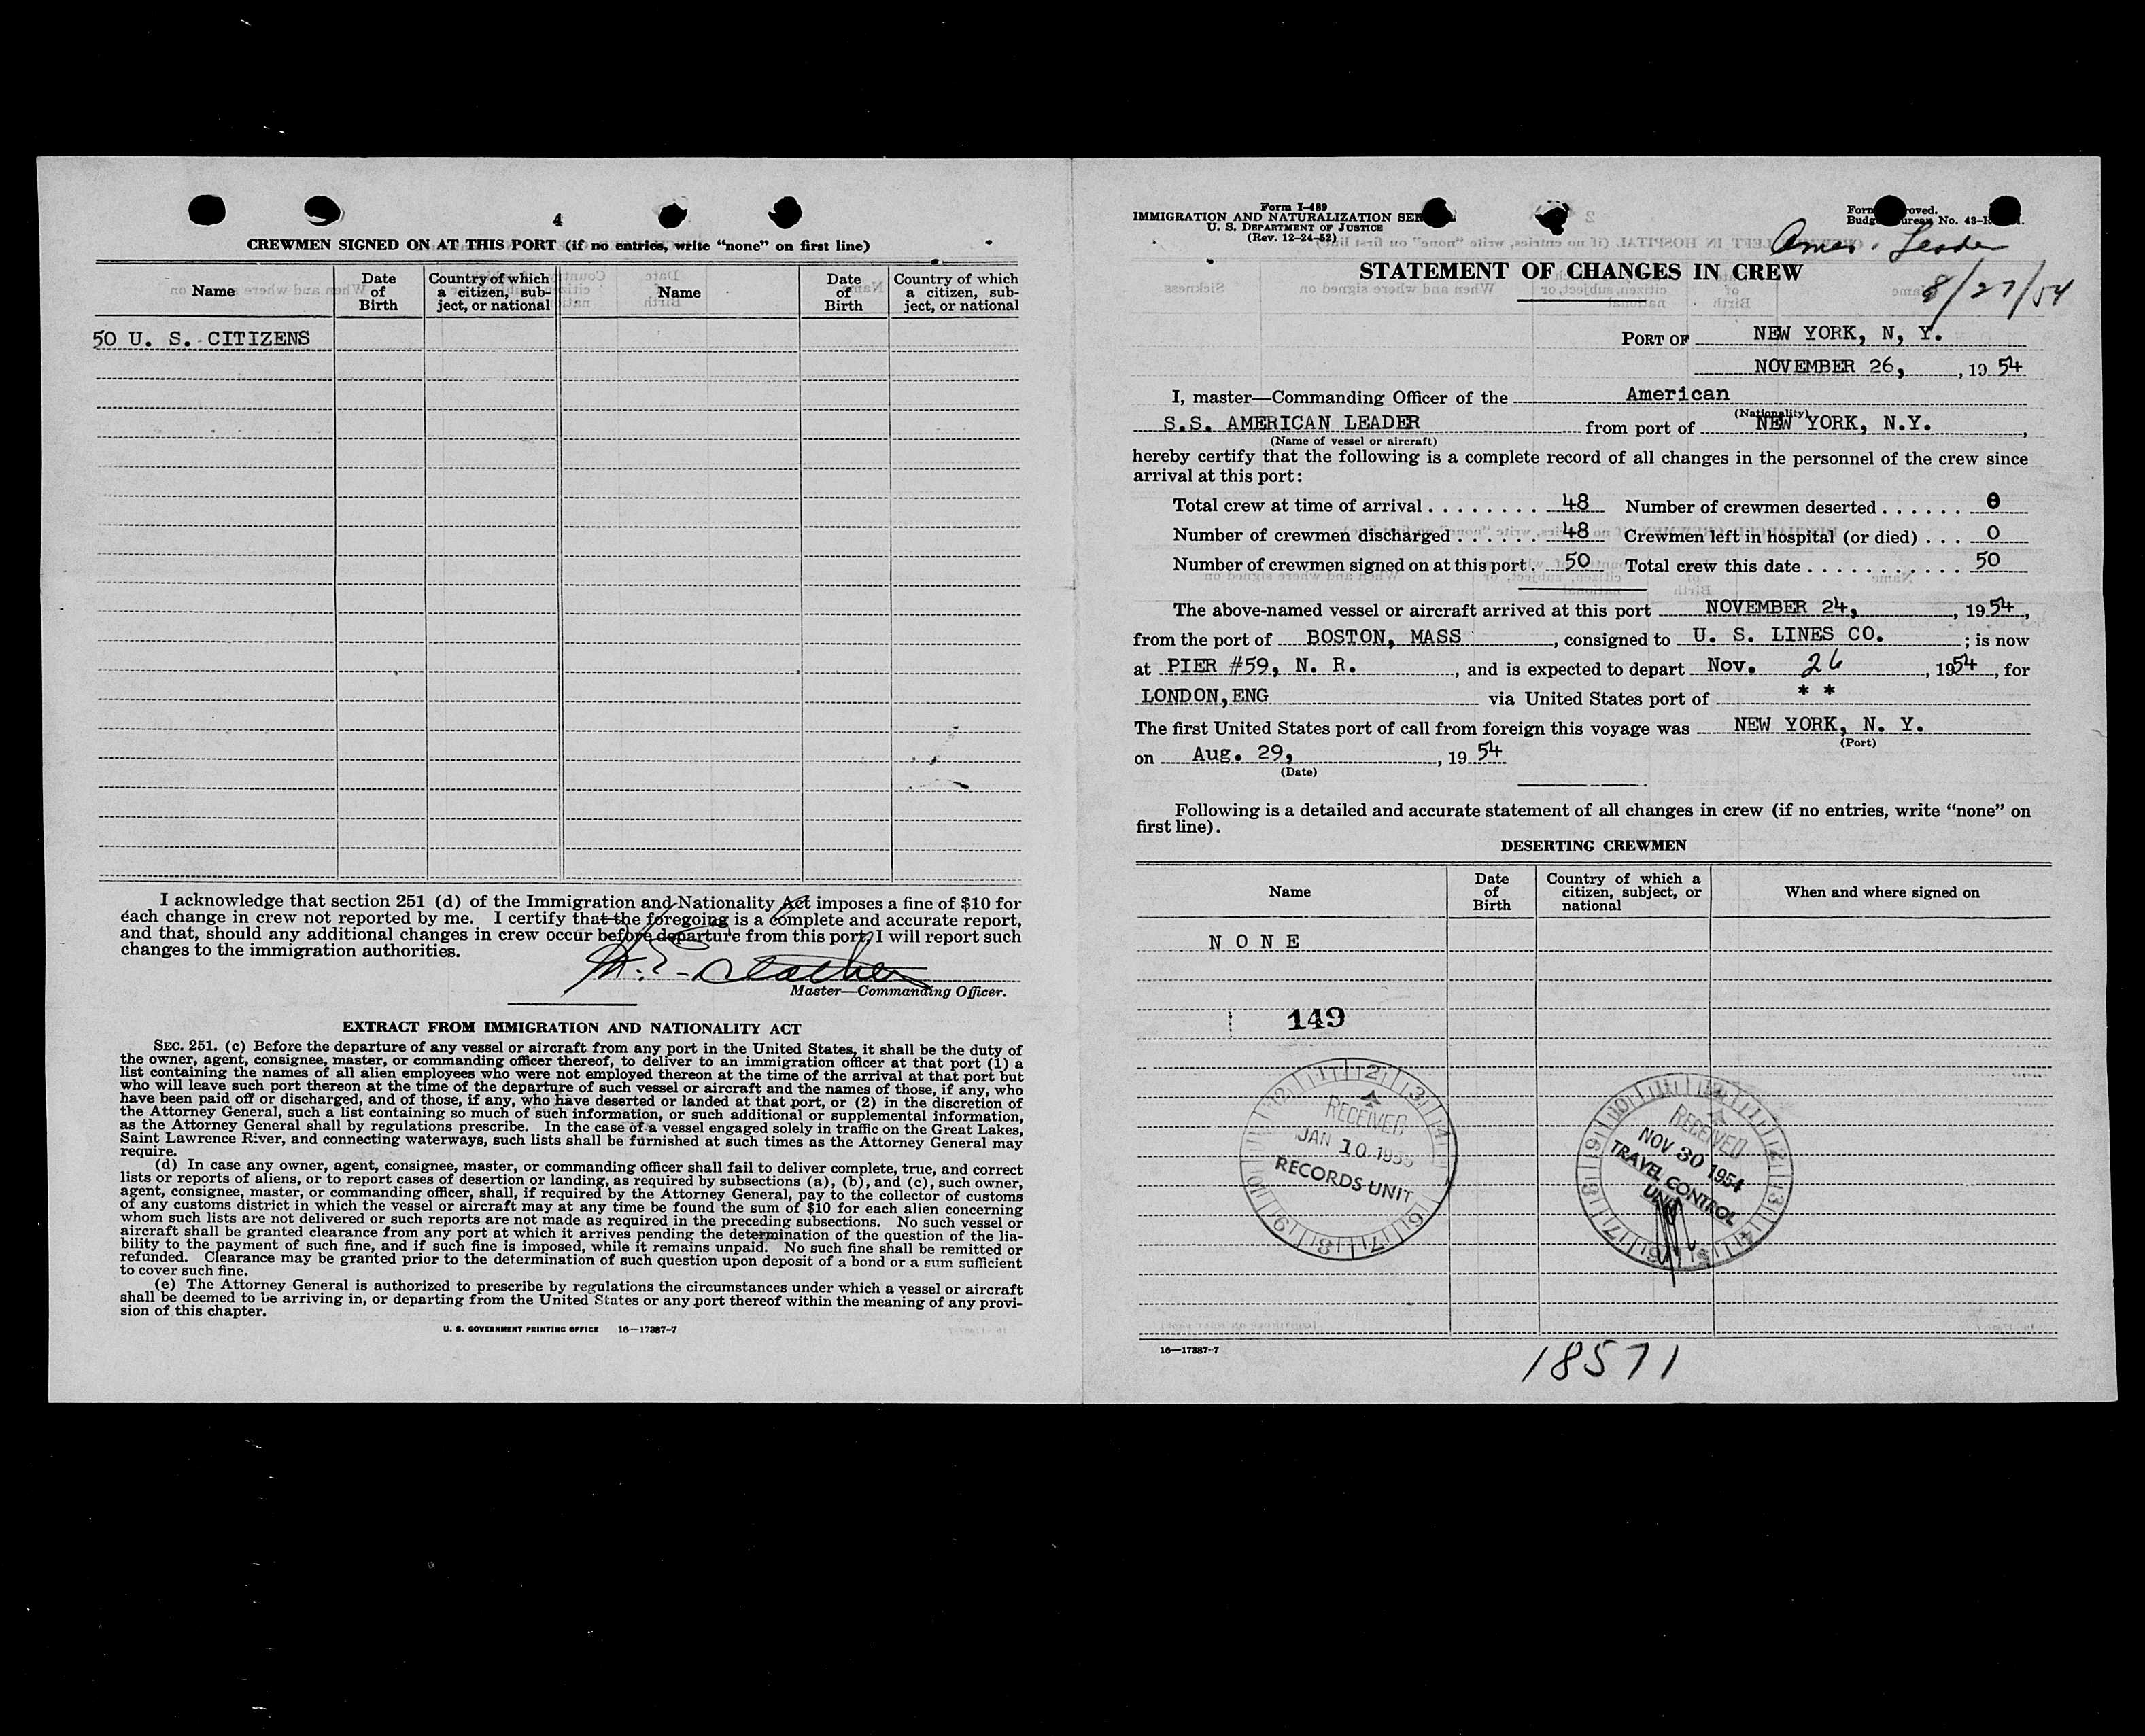 4
CREWMEN SIGNED ON AT THIS PORT (if no entries, write “none” on first line)
Name
Date of Birth
Country of which a citizen, sub-ject, or national
Name
Date of Birth
Country of which a citizen, sub-ject, or national
50 U. S. CITIZENS
I acknowledge that section 251 (d) of the Immigration and Nationality Act imposes a fine of $10 for
each change in crew not reported by me. I certify that the foregoing is a complete and accurate report,
and that, should any additional changes in crew occur before departure from this port, I will report such
changes to the immigration authorities.
Master—Commanding Officer.
EXTRACT FROM IMMIGRATION AND NATIONALITY ACT
SEC. 251. (c) Before the departure of any vessel or aircraft from any port in the United States, it shall be the duty of
the owner, agent, consignee, master, or commanding officer thereof, to deliver to an immigration officer at that port (1) a
list containing the names of all alien employees who were not employed thereon at the time of the arrival at that port but
who will leave such port thereon at the time of the departure of such vessel or aircraft and the names of those, if any, who
have been paid off or discharged, and of those, if any, who have deserted or landed at that port, or (2) in the discretion of
the Attorney General, such a list containing so much of such information, or such additional or supplemental information,
as the Attorney General shall by regulations prescribe. In the case of a vessel engaged solely in traffic on the Great Lakes,
Saint Lawrence River, and connecting waterways, such lists shall be furnished at such times as the Attorney General may
require.
(d) In case any owner, agent, consignee, master, or commanding officer shall fail to deliver complete, true, and correct
lists or reports of aliens, or to report cases of desertion or landing, as required by subsections (a), (b), and (c), such owner,
agent, consignee, master, or commanding officer, shall, if required by the Attorney General, pay to the collector of customs
of any customs district in which the vessel or aircraft may at any time be found the sum of $10 for each alien concerning
whom such lists are not delivered or such reports are not made as required in the preceding subsections. No such vessel or
aircraft shall be granted clearance from any port at which it arrives pending the determination of the question of the lia-
bility to the payment of such fine, and if such fine is imposed, while it remains unpaid. No such fine shall be remitted or
refunded. Clearance may be granted prior to the determination of such question upon deposit of a bond or a sum sufficient
to cover such fine.
(e) The Attorney General is authorized to prescribe by regulations the circumstances under which a vessel or aircraft
shall be deemed to be arriving in, or departing from the United States or any port thereof within the meaning of any provi-
sion of this chapter.
U. S. GOVERNMENT PRINTING OFFICE 16—17387-7
Form I-489
IMMIGRATION AND NATURALIZATION
U. S. DEPARTMENT OF JUSTICE
(Rev. 12-24-52)
No. 43-
Amer. Leader
8/27/54
STATEMENT OF CHANGES IN CREW
PORT OF NEW YORK, N, Y.
NOVEMBER 26, , 19 54
I, master—Commanding Officer of the American
(Nationality)
S.S. AMERICAN LEADER from port of NEW YORK, N.Y. ,
(Name of vessel or aircraft)
hereby certify that the following is a complete record of all changes in the personnel of the crew since
arrival at this port:
Total crew at time of arrival . . . . . . . . 48 Number of crewmen deserted . . . . . . 0
Number of crewmen discharged . . . . . . 48 Crewmen left in hospital (or died) . . . 0
Number of crewmen signed on at this port . 50 Total crew this date . . . . . . . . . . . 50
The above-named vessel or aircraft arrived at this port NOVEMBER 24, , 19 54 ,
from the port of BOSTON, MASS , consigned to U. S. LINES CO. ; is now
at PIER #59, N. R. , and is expected to depart Nov. 26 , 1954 , for
LONDON,ENG via United States port of * *
The first United States port of call from foreign this voyage was NEW YORK, N. Y.
(Port)
on Aug. 29, , 19 54
(Date)
Following is a detailed and accurate statement of all changes in crew (if no entries, write “none” on
first line).
DESERTING CREWMEN
Name
Date of Birth
Country of which a citizen, subject, or national
When and where signed on
N O N E
149
RECEIVED
JAN 10 1955
RECORDS UNIT
RECEIVED
NOV 30 1954
TRAVEL CONTROL
UNIT
16—17387-7
18571